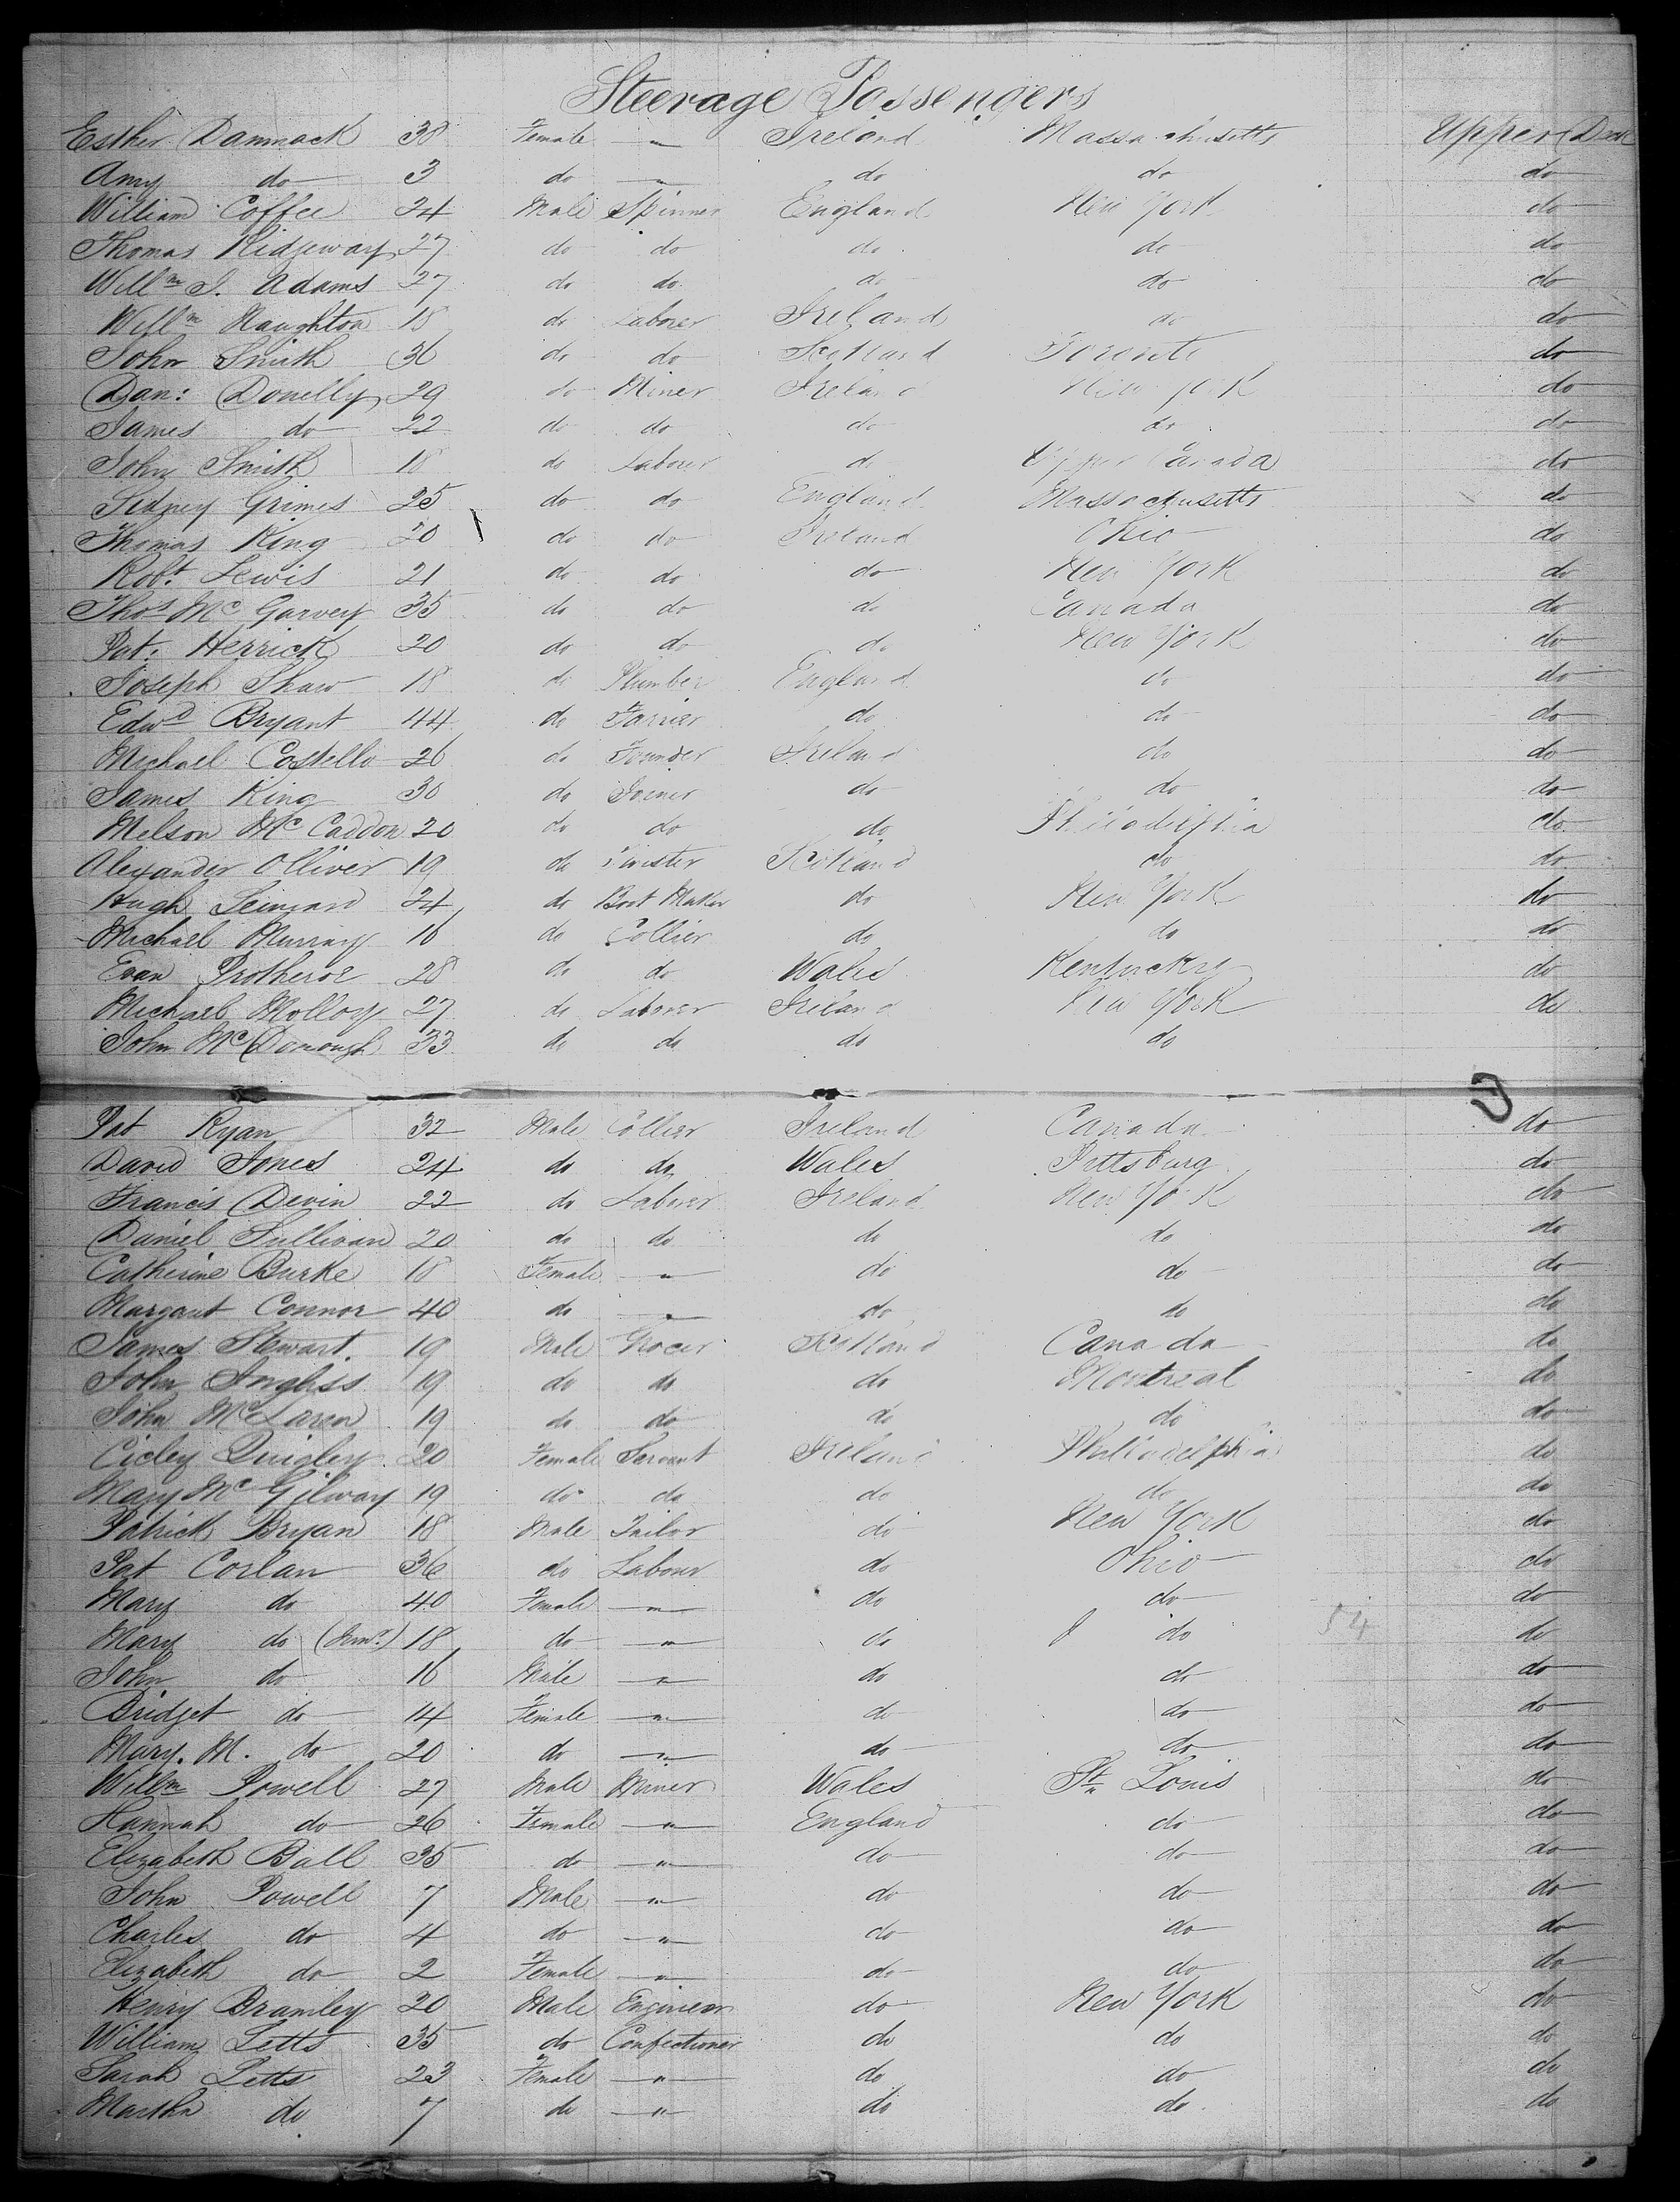 Steerage Passengers
Esther Dammack 38 Female " Ireland Massachusetts Upper Deck
Amy do 3 do " do do do
William Coffee 24 Male Spinner England New York do
Thomas Ridgeway 27 do do do do do
Willm J. Adams 27 do do do do do
Willm Naughton 18 do Laborer Ireland do do
John Smith 36 do do Scotland Toronto do
Dan: Donelly 29 do Miner Ireland New York do
James do 22 do do do do do
John Smith 18 do Laborer do Upper Canada do
Sidney Grimes 25 do do England Massachusetts do
Thomas King 20 do do Ireland Ohio do
Robt. Lewis 21 do do do New York do
Thos Mc Garvey 35 do do do Canada do
Pat: Herrick 20 do do do New York do
Joseph Shaw 18 do Plumber England do do
Edwd Bryant 44 do Farrier do do do
Michael Costello 26 do Founder Ireland do do
James King 30 do Joiner do do do
Melson Mc Caddon 20 do do do Philadelphia do
Alexander Olliver 19 do Twister Scotland do do
Hugh 24 do Boot Maker do New York do
Michael Murray 16 do Collier do do do
Evan Protheroe 28 do do Wales Kentucky do
Michael Molloy 27 do Laborer Ireland New York do
John Mc Donough 33 do do do do do
Pat Ryan 32 Male Collier Ireland Canada do
David Jones 24 do do Wales Pittsburg do
Francis Devin 22 do Laborer Ireland New York do
Daniel Sullivan 20 do do do do do
Catherine Burke 18 Female " do do do
Margaut Connor 40 do " do do do
James Stewart. 19 Male Grocer Scotland Canada do
John Ingliss 19 do do do Montreal do
John McLaren 19 do do do do do
Cicley Quigley 20 Female Servant Ireland Philiadelphia do
Mary Mc Gilway 19 do do do do do
Patrick Bryan 18 Male Tailor do New York do
Pat Corlan 36 do Labour do Ohio do
Mary do 40 Female " do do do
Mary do (Junr.) 18 do " do do 54 do
John do 16 Male " do do do
Bridget do 14 Female " do do do
Mary. M. do 20 do " do do do
Willm Powell 27 Male Miner Wales St Louis do
Hannah do 26 Female " England do do
Elizabeth Ball 35 do " do do do
John Powell 7 Male " do do do
Charles do 4 do " do do do
Elizabeth do 2 Female " do do do
Henry Bramley 20 Male Engineer do New York do
William Letts 35 do Confectioner do do do
Sarah Letts 23 Female " do do do
Martha do 7 do " do do do